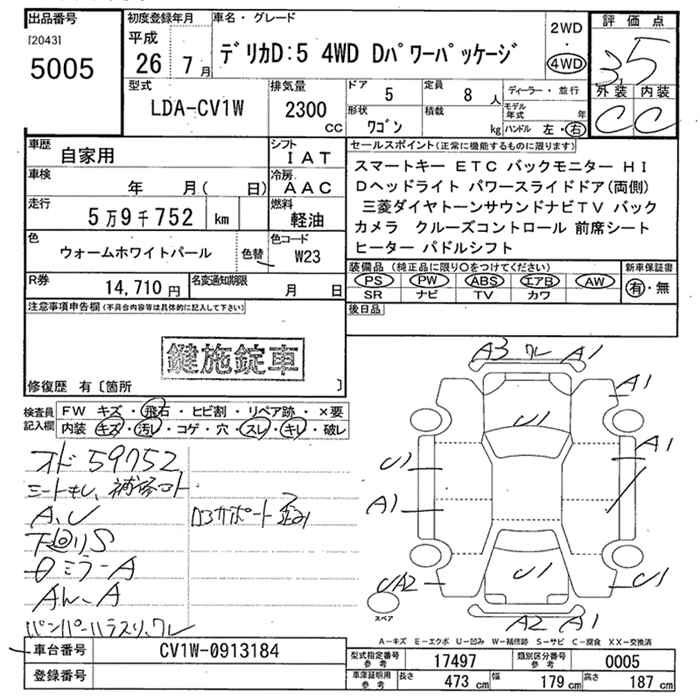 出品番号
[2043]
5005
初度登録年月
平成
26 7月
車名・グレード
デリカD:5 4WD Dパワーパッケージ
2WD
・
4WD
評価点
3.5
外装 内装
C C
型式
LDA-CV1W
排気量
2300
CC
ドア
5
定員
8 人
形状
ワゴン
積載
kg
ディーラー・並行
モデル年式 年
ハンドル 左・右
車歴
自家用
シフト
IAT
車検
年 月( 日)
冷房
AAC
走行
5万9千752 km
燃料
軽油
色
ウォームホワイトパール
色替
色コード
W23
R券
14,710円
名変通知期限
月 日
セールスポイント(正常に機能するものに限ります)
スマートキー ETC バックモニター HI
Dヘッドライト パワースライドドア(両側)
三菱ダイヤトーンサウンドナビTV バック
カメラ クルーズコントロール 前席シート
ヒーター パドルシフト
装備品(純正品に限り○をつけてください)
PS PW ABS エアB AW
SR ナビ TV カワ
新車保証書
有・無
後日品
注意事項申告欄(不具合内容等は具体的に記入して下さい)
鍵施錠車
修復歴 有〔箇所 〕
検査員記入欄
FW キズ・飛石・ヒビ割・リペア跡・×要
内装 キズ・汚レ・コゲ・穴・スレ・キレ・破レ
オド 59752
シートキレ、補修コト
A、U
下廻りS
ロミラーA
AW、A
バンパーハラスリ、ワレ
A3 ワレ A1
A1
U1
A1
U1
A1
UA2
U1
U1
A2 A1
スペア
A-キズ E-エクボ U-凹み W-補修跡 S-サビ C-腐食 XX-交換済
車台番号
CV1W-0913184
登録番号
型式指定番号
参考
17497
類別区分番号
参考
0005
車庫証明用
参考
長さ 473 cm 幅 179 cm 高さ 187 cm